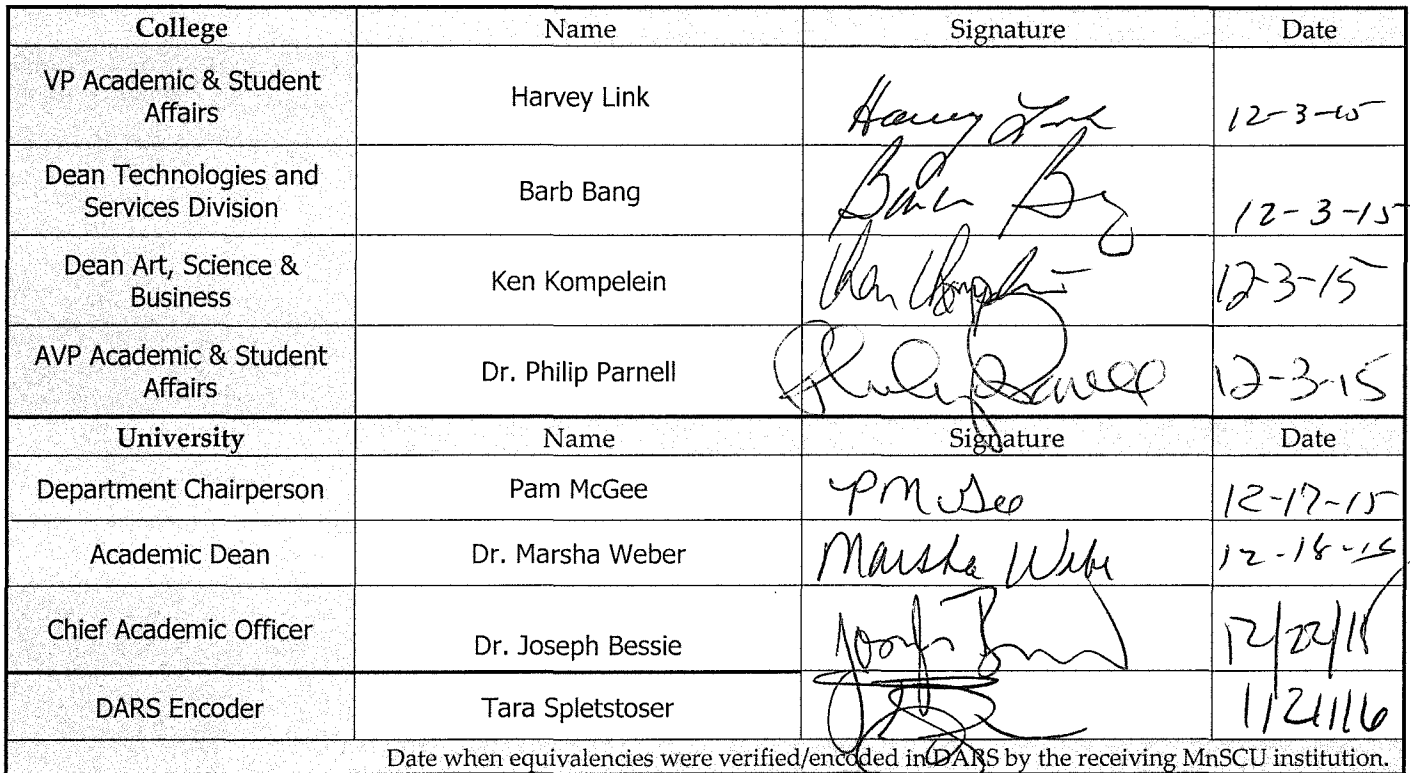 College Name Signature Date
VP Academic & Student
Affairs
Harvey Link Harvey Link 12-3-15
Dean Technologies and
Services Division
Barb Bang Barb Bang 12-3-15
Dean Art, Science &
Business
Ken Kompelein Ken Kompelein 12-3-15
AVP Academic & Student
Affairs
Dr. Philip Parnell Philip Parnell 12-3-15
University Name Signature Date
Department Chairperson Pam McGee P McGee 12-17-15
Academic Dean Dr. Marsha Weber Marsha Weber 12-18-15
Chief Academic Officer Dr. Joseph Bessie Joseph 12/22/15
DARS Encoder Tara Spletstoser 1/21/16
Date when equivalencies were verified/encoded in DARS by the receiving MnSCU institution.